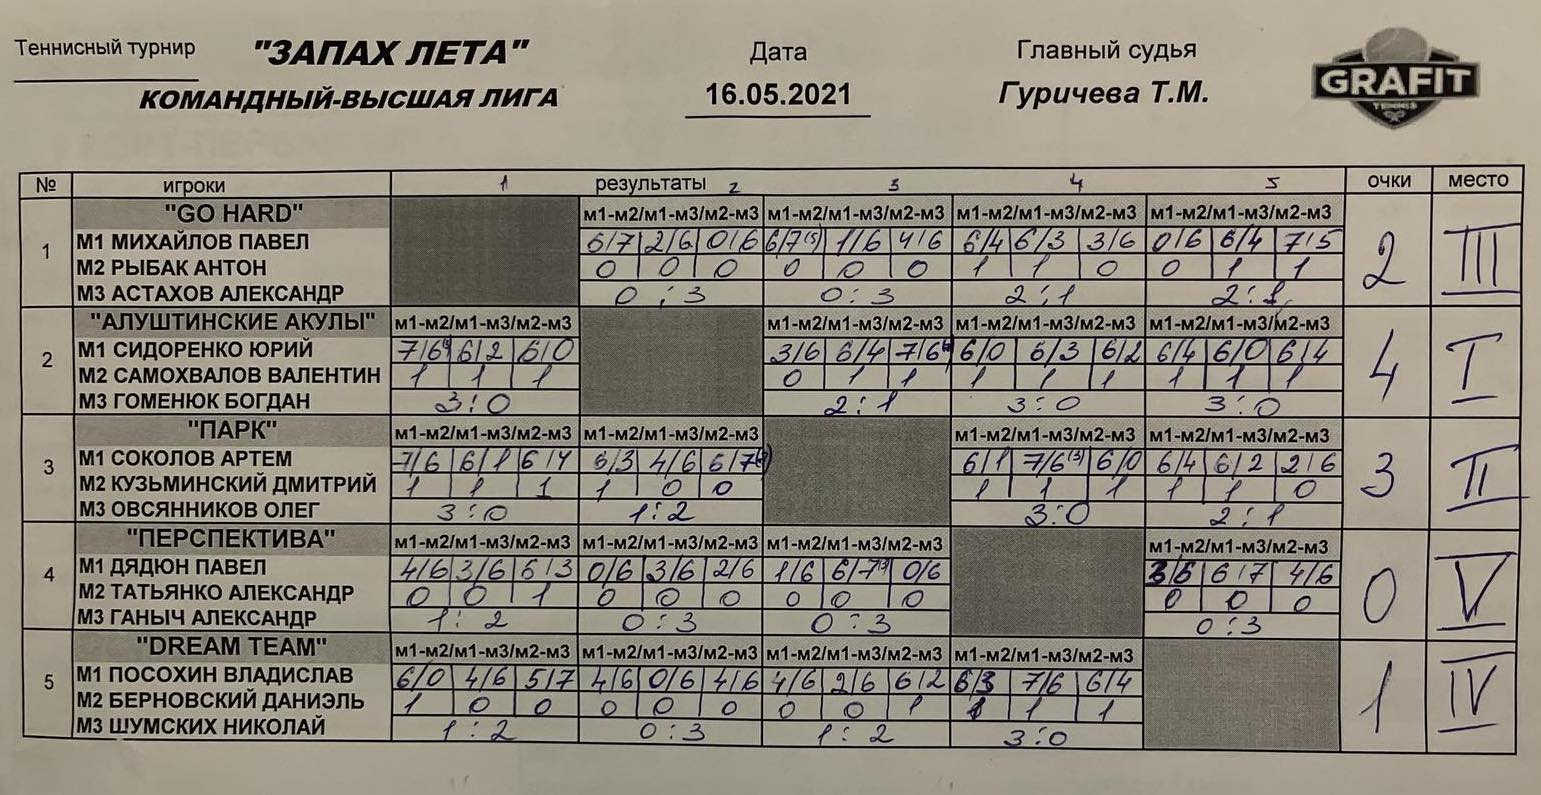 Теннисный турнир "ЗАПАХ ЛЕТА" Дата Главный судья
КОМАНДНЫЙ-ВЫСШАЯ ЛИГА 16.05.2021 Гуричева Т.М.
GRAFIT
TENNIS
№ игроки 1 результаты 2 3 4 5 очки место
"GO HARD" м1-м2/м1-м3/м2-м3 м1-м2/м1-м3/м2-м3 м1-м2/м1-м3/м2-м3 м1-м2/м1-м3/м2-м3
1 М1 МИХАЙЛОВ ПАВЕЛ 6/7 2/6 0/6 6/7(5) 1/6 4/6 6/4 6/3 3/6 0/6 6/4 7/5 2 III
М2 РЫБАК АНТОН 0 0 0 0 0 0 1 1 0 0 1 1
М3 АСТАХОВ АЛЕКСАНДР 0:3 0:3 2:1 2:1
"АЛУШТИНСКИЕ АКУЛЫ" м1-м2/м1-м3/м2-м3 м1-м2/м1-м3/м2-м3 м1-м2/м1-м3/м2-м3 м1-м2/м1-м3/м2-м3
2 М1 СИДОРЕНКО ЮРИЙ 7/6 6/2 6/0 3/6 6/4 7/6 6/0 6/3 6/2 6/4 6/0 6/4 4 I
М2 САМОХВАЛОВ ВАЛЕНТИН 1 1 1 0 1 1 1 1 1 1 1 1
М3 ГОМЕНЮК БОГДАН 3:0 2:1 3:0 3:0
"ПАРК" м1-м2/м1-м3/м2-м3 м1-м2/м1-м3/м2-м3 м1-м2/м1-м3/м2-м3 м1-м2/м1-м3/м2-м3
3 М1 СОКОЛОВ АРТЕМ 7/6 6/1 6/4 6/3 4/6 6/7 6/1 7/6(3) 6/0 6/4 6/2 2/6 3 II
М2 КУЗЬМИНСКИЙ ДМИТРИЙ 1 1 1 1 0 0 1 1 1 1 1 0
М3 ОВСЯННИКОВ ОЛЕГ 3:0 1:2 3:0 2:1
"ПЕРСПЕКТИВА" м1-м2/м1-м3/м2-м3 м1-м2/м1-м3/м2-м3 м1-м2/м1-м3/м2-м3 м1-м2/м1-м3/м2-м3
4 М1 ДЯДЮН ПАВЕЛ 4/6 3/6 6/3 0/6 3/6 2/6 1/6 6/7(3) 0/6 3/6 6/7 4/6 0 V
М2 ТАТЬЯНКО АЛЕКСАНДР 0 0 1 0 0 0 0 0 0 0 0 0
М3 ГАНЫЧ АЛЕКСАНДР 1:2 0:3 0:3 0:3
"DREAM TEAM" м1-м2/м1-м3/м2-м3 м1-м2/м1-м3/м2-м3 м1-м2/м1-м3/м2-м3 м1-м2/м1-м3/м2-м3
5 М1 ПОСОХИН ВЛАДИСЛАВ 6/0 4/6 5/7 4/6 0/6 4/6 4/6 2/6 6/2 6/3 7/6 6/4 1 IV
М2 БЕРНОВСКИЙ ДАНИЭЛЬ 1 0 0 0 0 0 0 0 1 1 1 1
М3 ШУМСКИХ НИКОЛАЙ 1:2 0:3 1:2 3:0